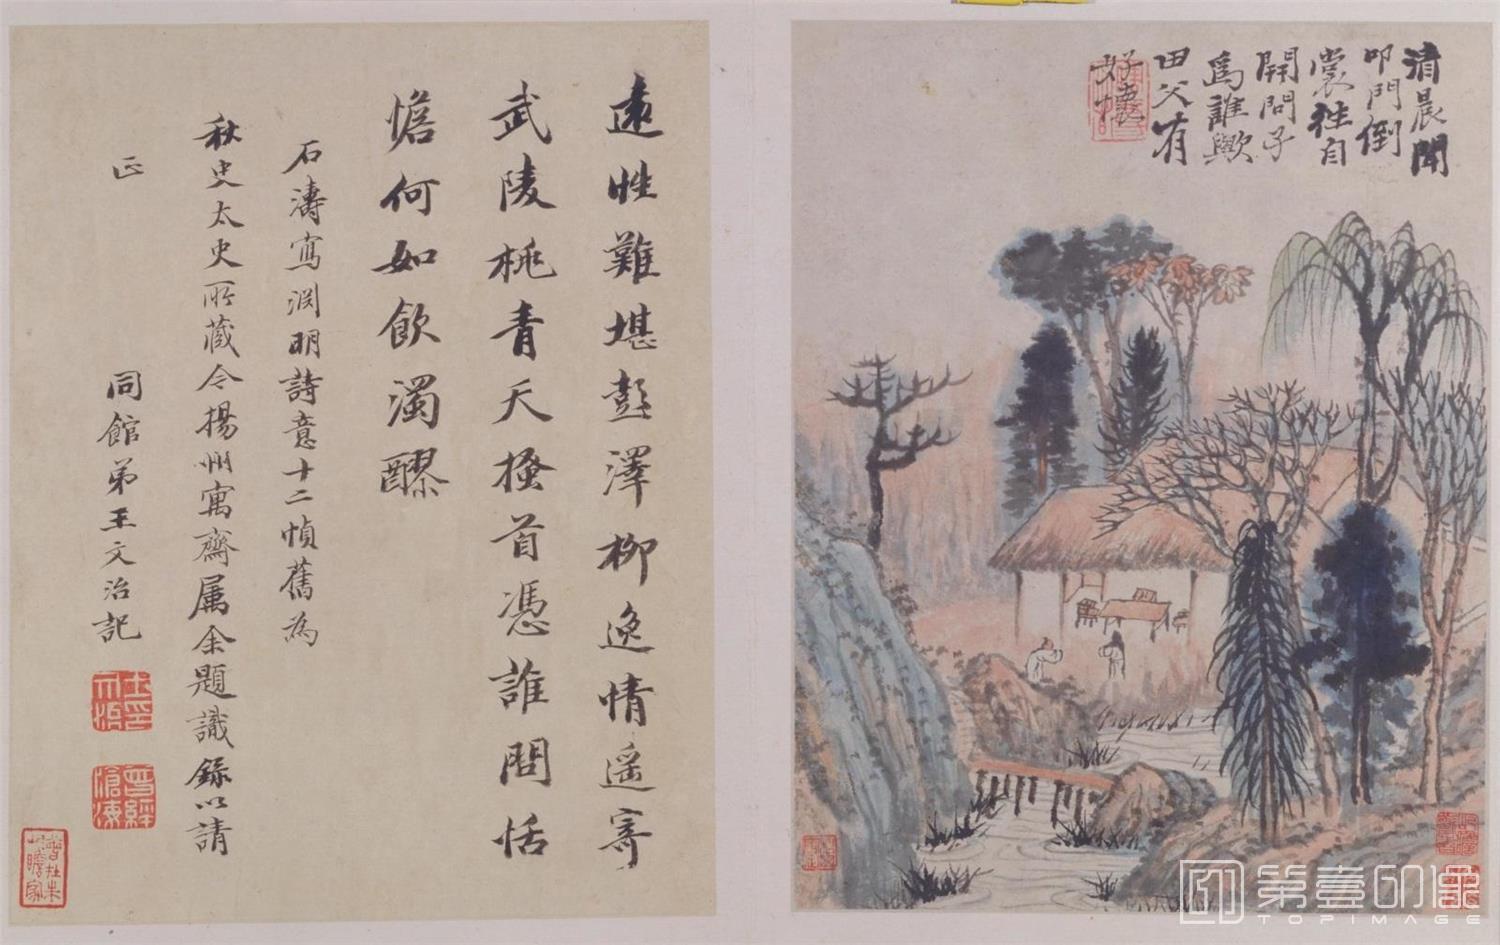 清晨聞
叩門倒
裳往自
開問子
為誰歟
田父有
好懷
遠性難堪彭澤柳逸情遥寄
武陵桃青天搔首憑誰問恬
憺何如飲濁醪
石濤寫淵明詩意十二幀舊為
秋史太史所藏令揚州寓齋属余題識録以請
正
同館弟王文治記
曾經滄海
第壹印像
TOPIMAGE